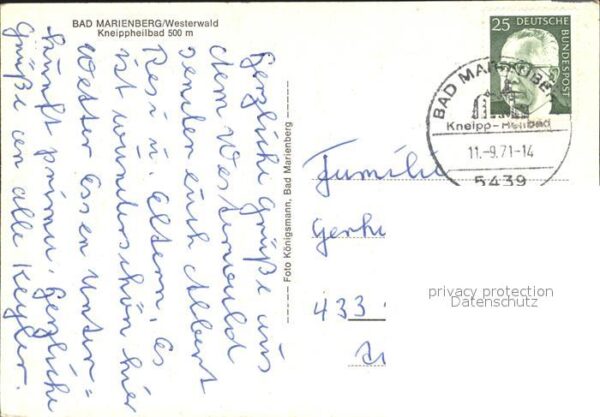 BAD MARIENBERG/Westerwald
Kneippheilbad 500 m
Herzliche Grüße aus
dem Westerwald
senden euch Albert
Resi u. Eltern, Es
ist wunderschön hier
Wetter Essen Unter=
kunft prima. Herzliche
Grüße an alle Keyler.
Foto Königsmann, Bad Marienberg
25 DEUTSCHE
BUNDESPOST
BAD MARIENBE
Kneipp-Heilbad
11.-9.71-14
5439
Famili
Gerh
433
privacy protection
Datenschutz